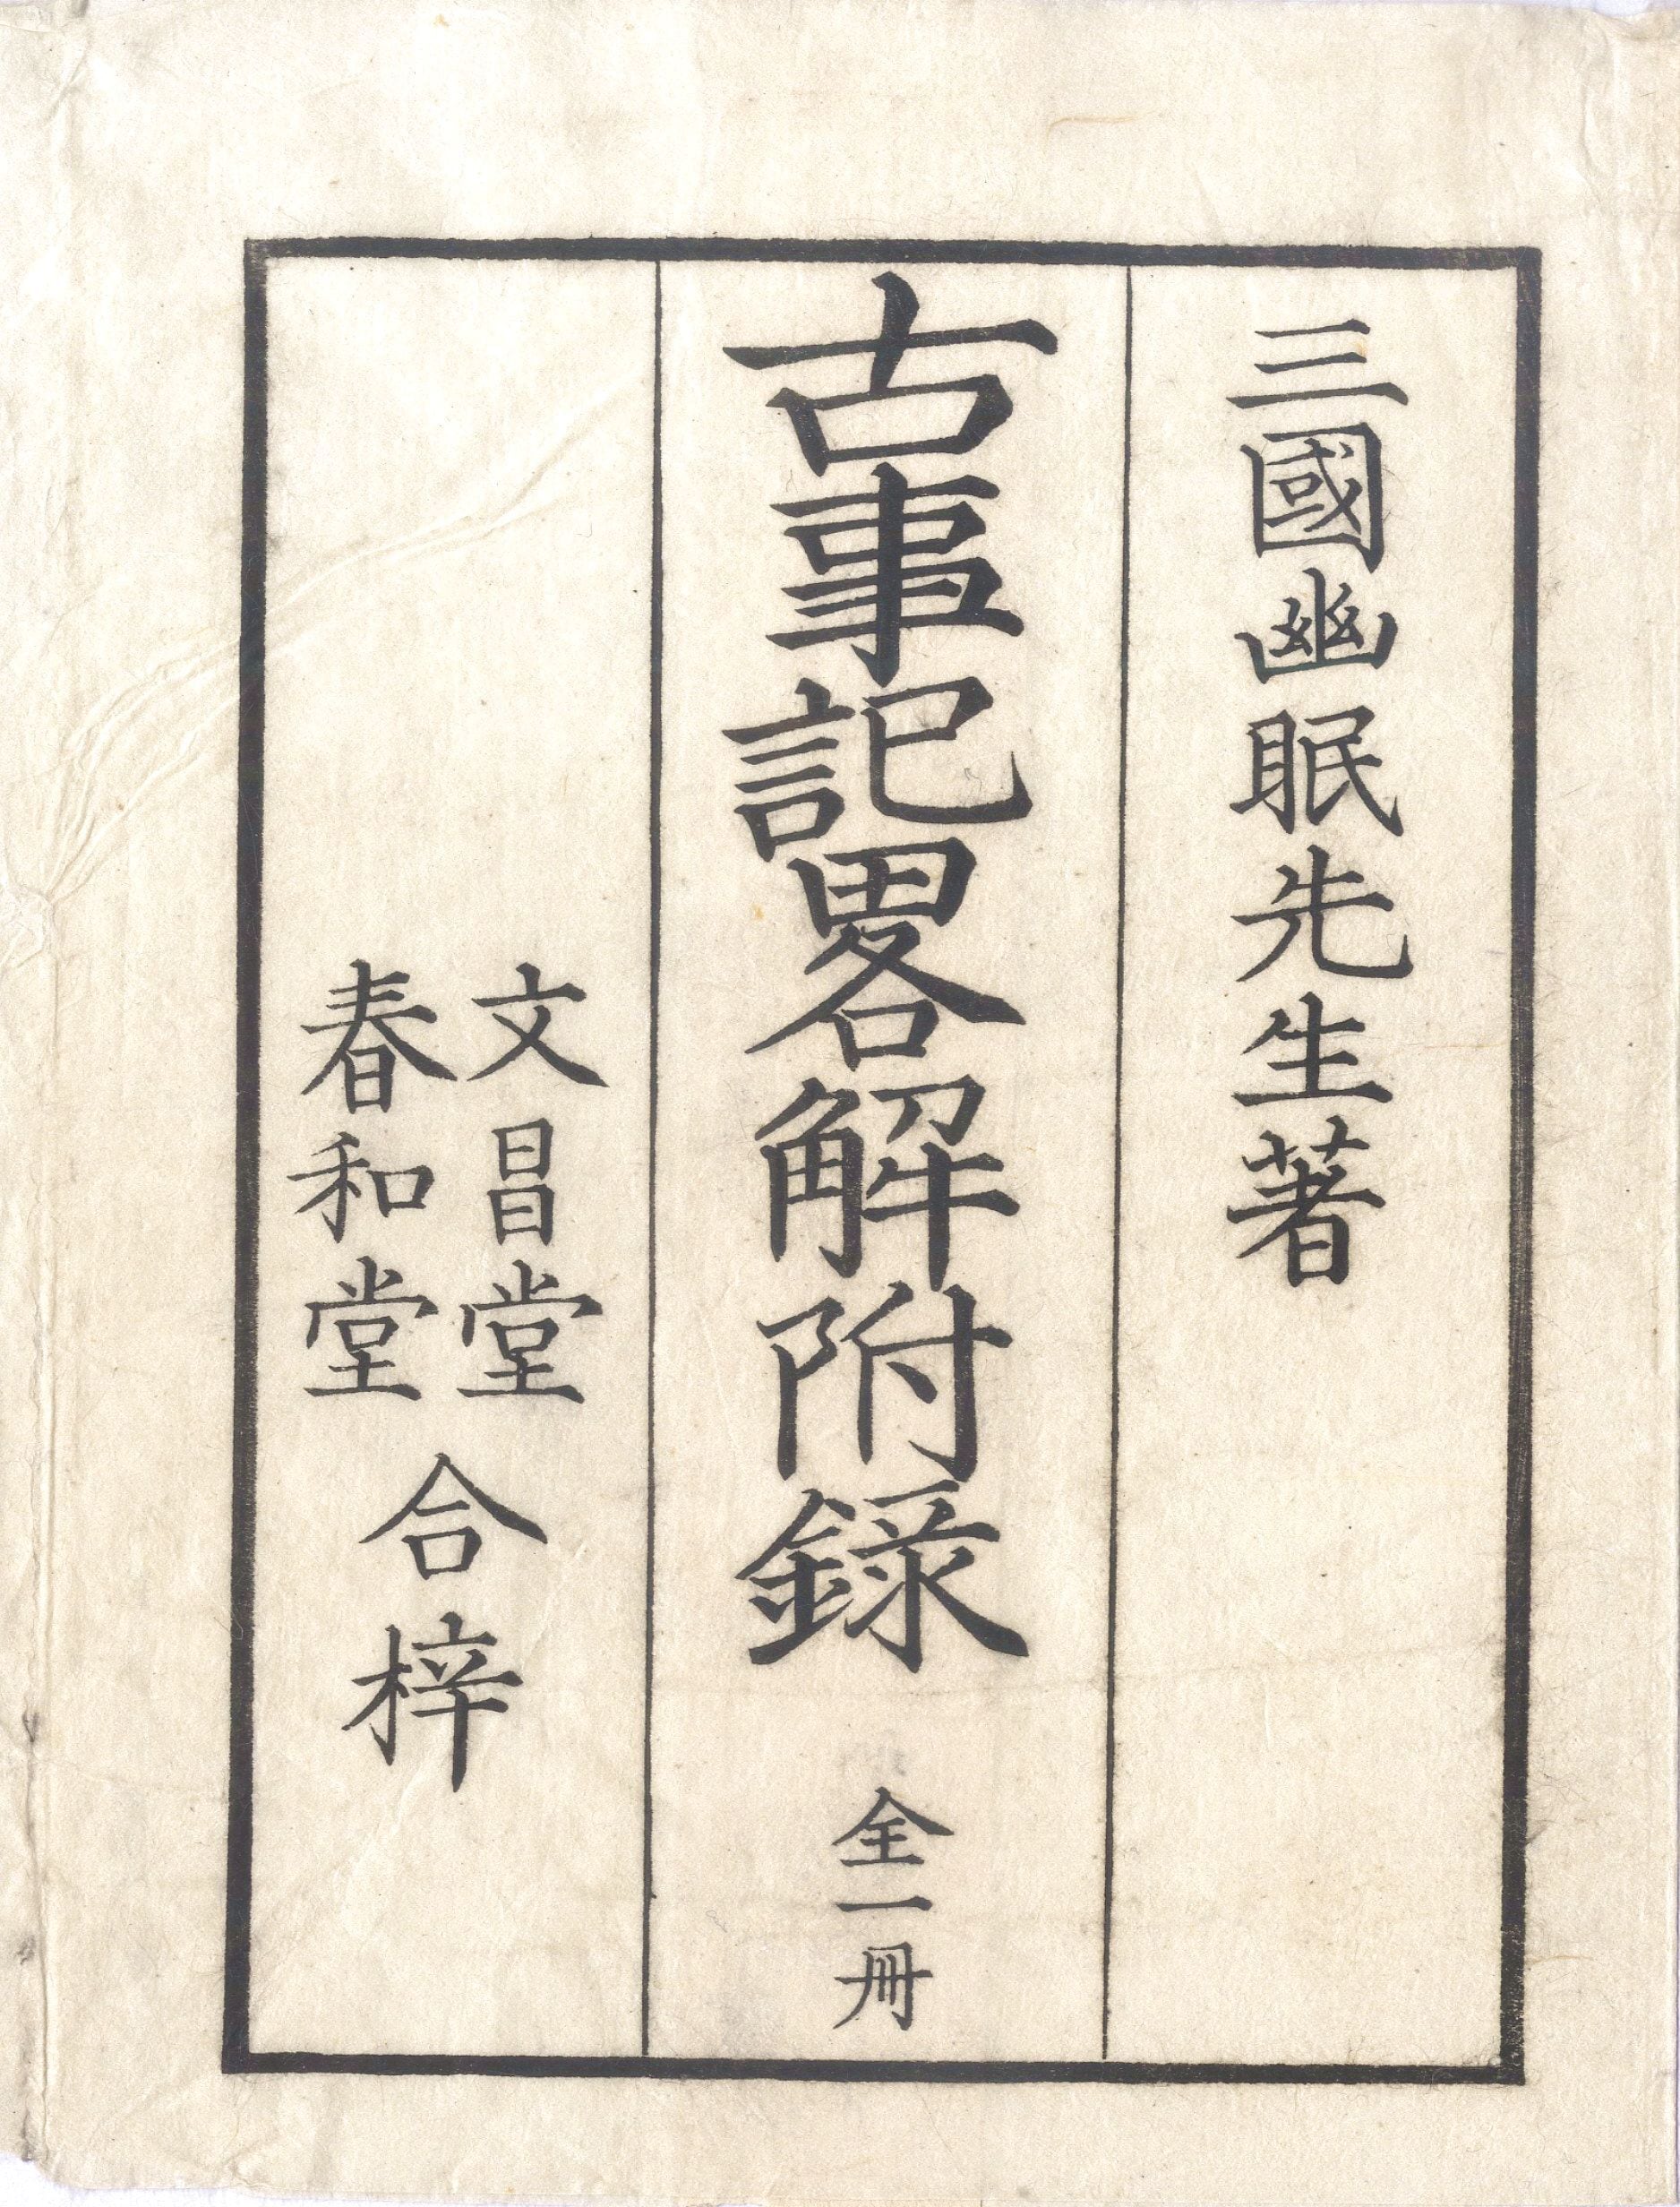 三國幽眠先生著
古事記畧解附錄 全一冊
文昌堂
春和堂
合梓